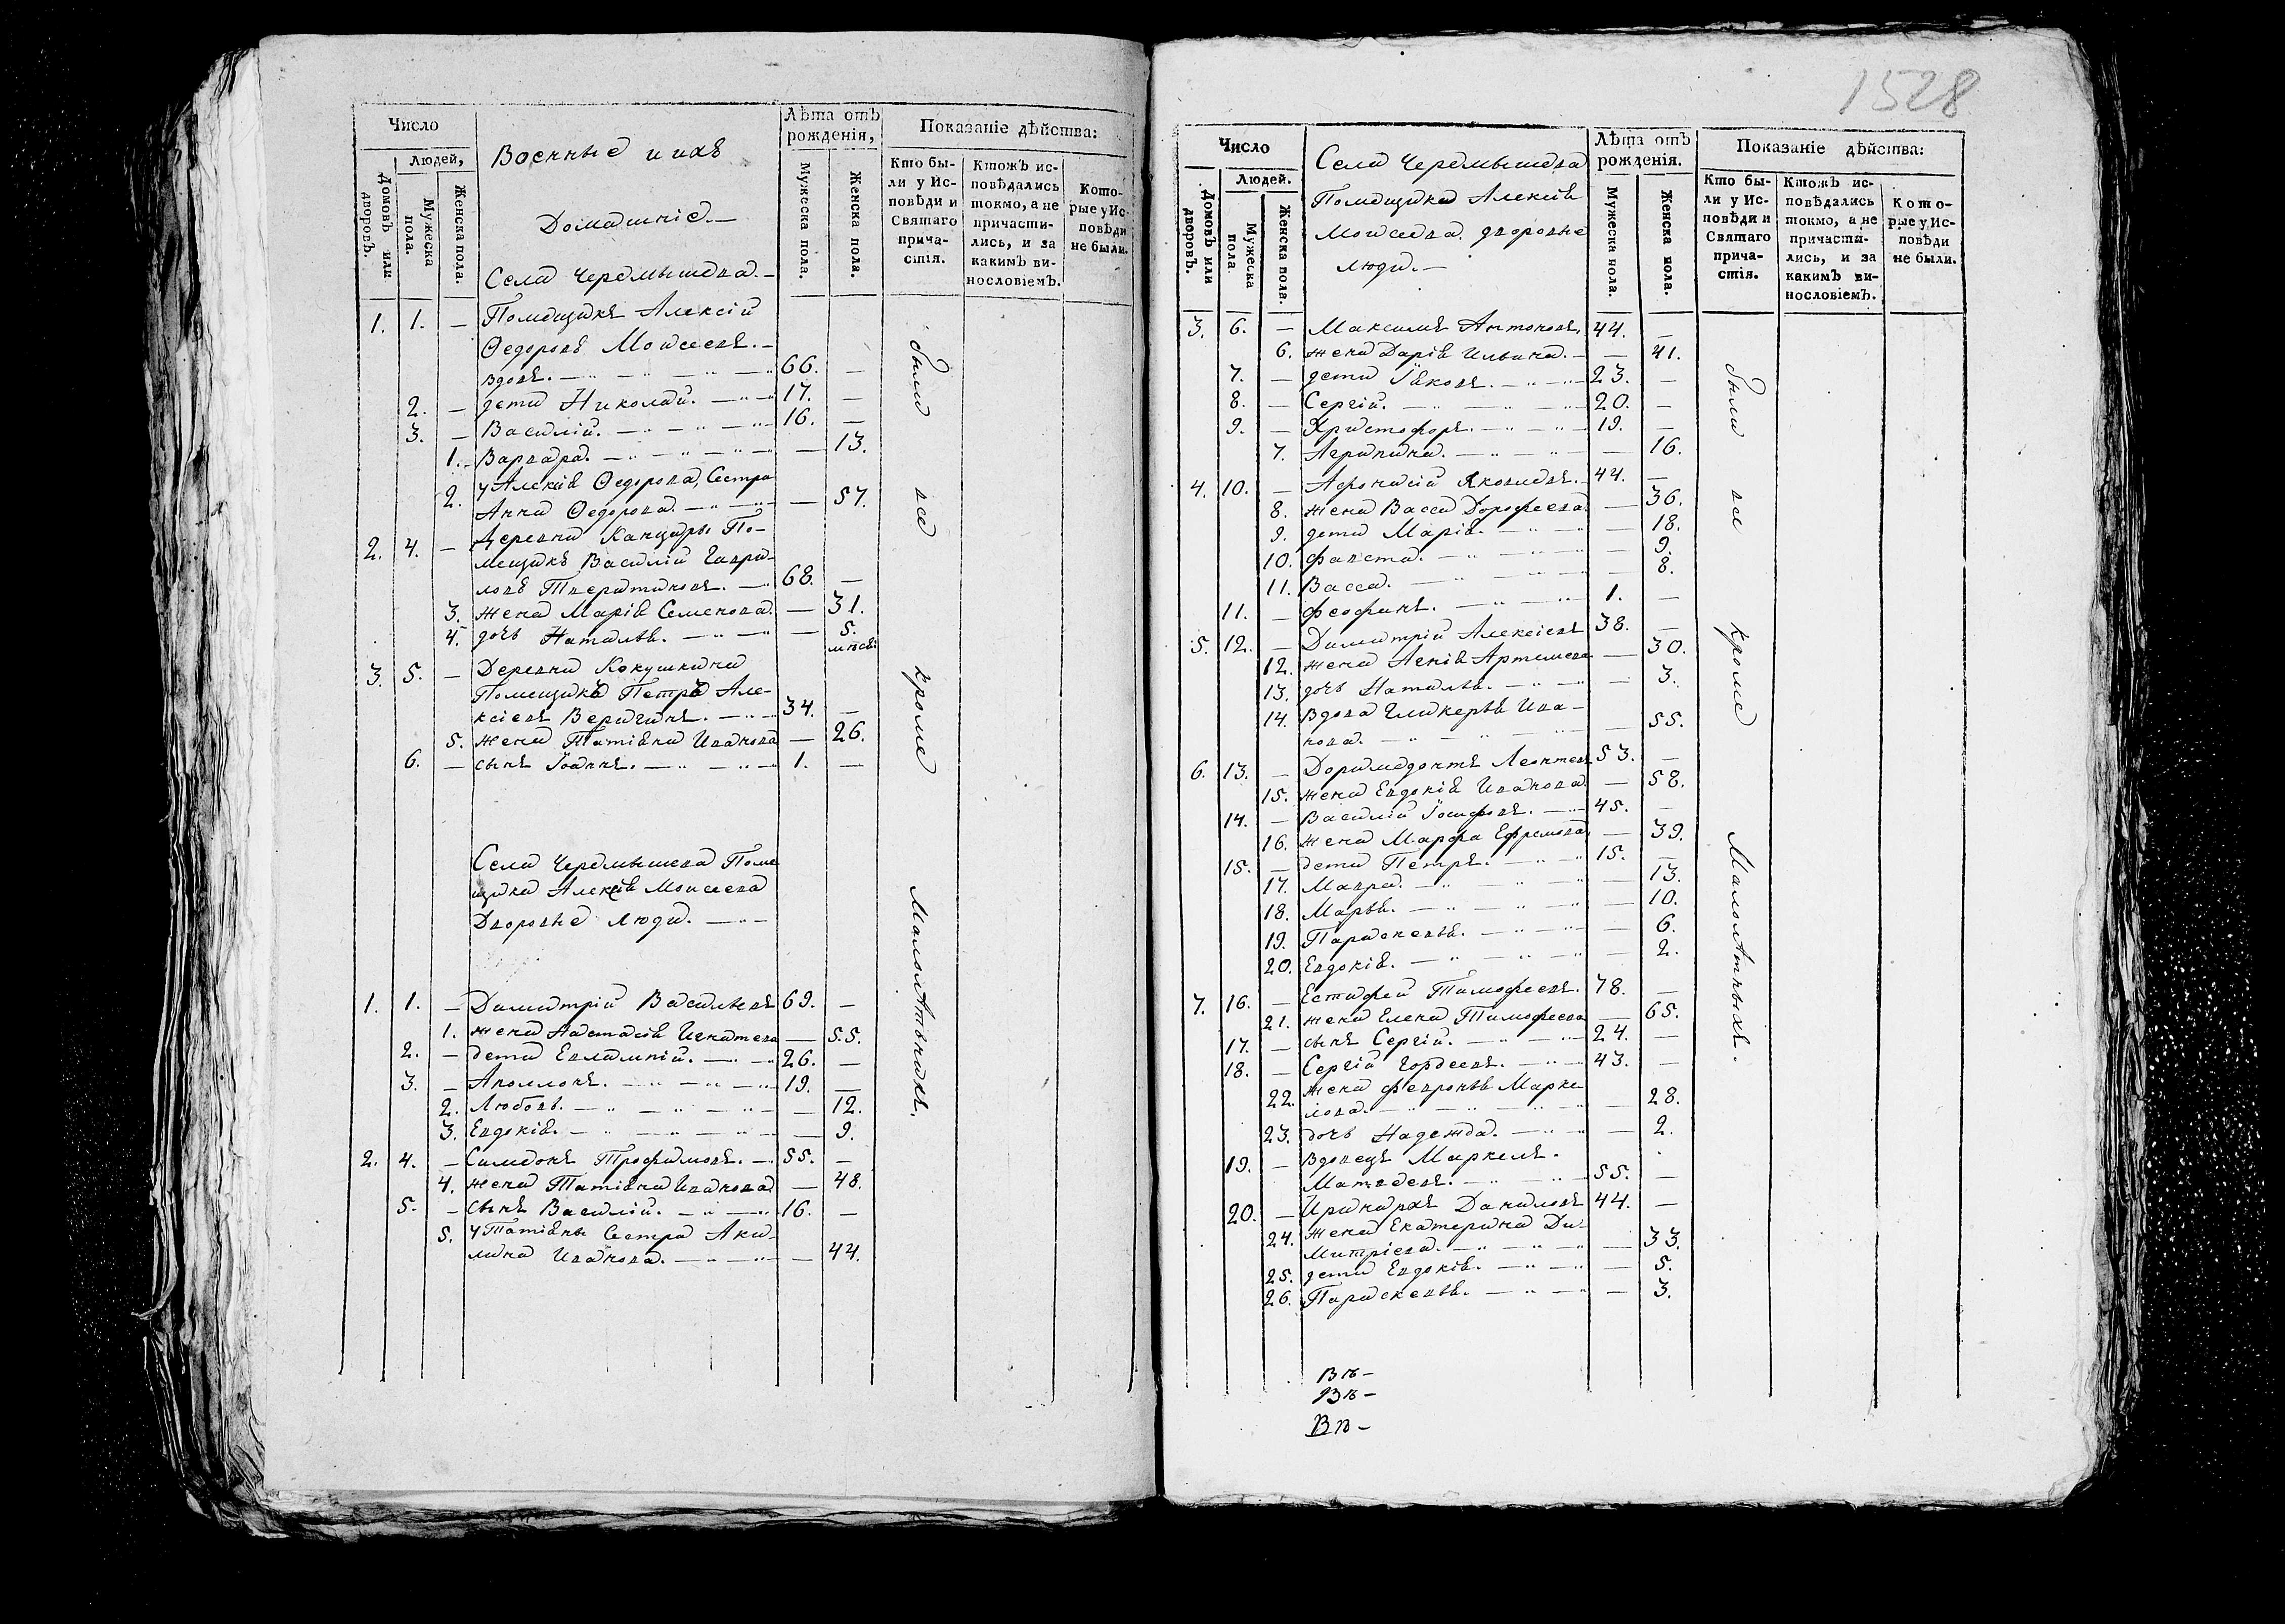 Число
Людей,
Домовъ или дворовъ.
Мужеска пола.
Женска пола.
Военные и ихъ
Домашніе.—
Села Черемышева.—
Лѣта отъ рожденія,
Мужеска пола.
Женска пола.
Показаніе дѣйства:
Кто бы-
ли у Ис-
повѣди и
Святаго
прича-
стія.
Ктожъ ис-
повѣдались
токмо, а не
причасти-
лись, и за
какимъ ви-
нословіемъ.
Кото-
рые у Ис-
повѣди
не были.
1. 1. — Помещикъ Алексій
Ѳедоровъ Моисеевъ.—
вдовъ. 66. —
2. — дети Николай. 17. —
3. — Василій. 16. —
1. Варвара. — 13.
2. у Алексія Ѳедорова, Сестра
Анна Ѳедорова. — 57.
2. 4. — Деревни Канцыры По-
мещикъ Василій Гаври-
ловъ Тверитиновъ. 68. —
3. жена Марія Семенова. — 31.
4. дочь Наталья. — 5.
мѣсяц.
3. 5. — Деревни Кокушкина
Помещика Петра Але-
ксіевъ Веригинъ. 34. —
5. жена Татіана Иванова — 26.
6. — сынъ Іоаннъ. 1. —
Села Черемышева Поме
щика Алексія Моисеева
Дворовые люди.
1. 1. — Димитрій Васильевъ 69. —
1. жена Настасія Игнатева — 55.
2. — дети Евлампій. 26. —
3. — Аполлонъ. 19. —
2. Любовь. — 12.
3. Евдокія. — 9.
2. 4. — Симеонъ Трофимовъ. 55. —
4. жена Татіана Иванова — 48.
5. — сынъ Василій. 16. —
5. у Татіаны Сестра Аку-
лина Иванова. — 44.
были все кроме малолѣтныхъ.
1528
Число
Людей.
Домовъ или дворовъ.
Мужеска пола.
Женска пола.
Села Черемышева
Помещика Алексія
Моисеева дворовые
люди.—
Лѣта отъ рожденія.
Мужеска пола.
Женска пола.
Показаніе дѣйства:
Кто бы-
ли у Ис-
повѣди и
Святаго
прича-
стія.
Ктожъ ис-
повѣдались
токмо, а не
причасти-
лись, и за
какимъ ви-
нословіемъ.
Кото-
рые у Ис-
повѣди
не были.
3. 6. — Максимъ Антоновъ, 44. —
6. жена Дарія Ильина. — 41.
7. — дети Іяковъ. 23. —
8. — Сергій. 20. —
9. — Христофоръ. 19. —
7. Агрипина. — 16.
4. 10. — Афонасій Яковлевъ. 44. —
8. жена Васса Дорофеева. — 36.
9. дети Марія. — 18.
10. Фавста. — 9.
11. Васса. — 8.
11. — Феофанъ. 1. —
5. 12. — Димитрій Алексіевъ 38. —
12. жена Агнія Артемева — 30.
13. дочь Наталья. — 3.
14. Вдова Гликерья Ива-
нова. — 55.
6. 13. — Доримедонтъ Леонтевъ 53. —
15. жена Евдокія Иванова. — 58.
14. — Василій Іосифовъ. 45. —
16. жена Марфа Ефремова — 39.
15. — дети Петръ. 15. —
17. Мавра. — 13.
18. Марья. — 10.
19. Параскевья. — 6.
20. Евдокія. — 2.
7. 16. — Естафей Тимофеевъ. 78. —
21. жена Елена Тимофеева — 65.
17. — сынъ Сергій. 24. —
18. — Сергій Гордеевъ. 43. —
22. жена Февронья Марке
лова. — 28.
23. дочь Надежда. — 2.
19. — Вдовецъ Маркелъ.
Матвеевъ. 55. —
20. — Иринархъ Даниловъ 44. —
24. жена Екатерина Ди-
митріева. — 33.
25. дети Евдокія. — 5.
26. Параскевья. — 3.
были все кроме малолѣтныхъ.
Въ—
Въ—
Въ—